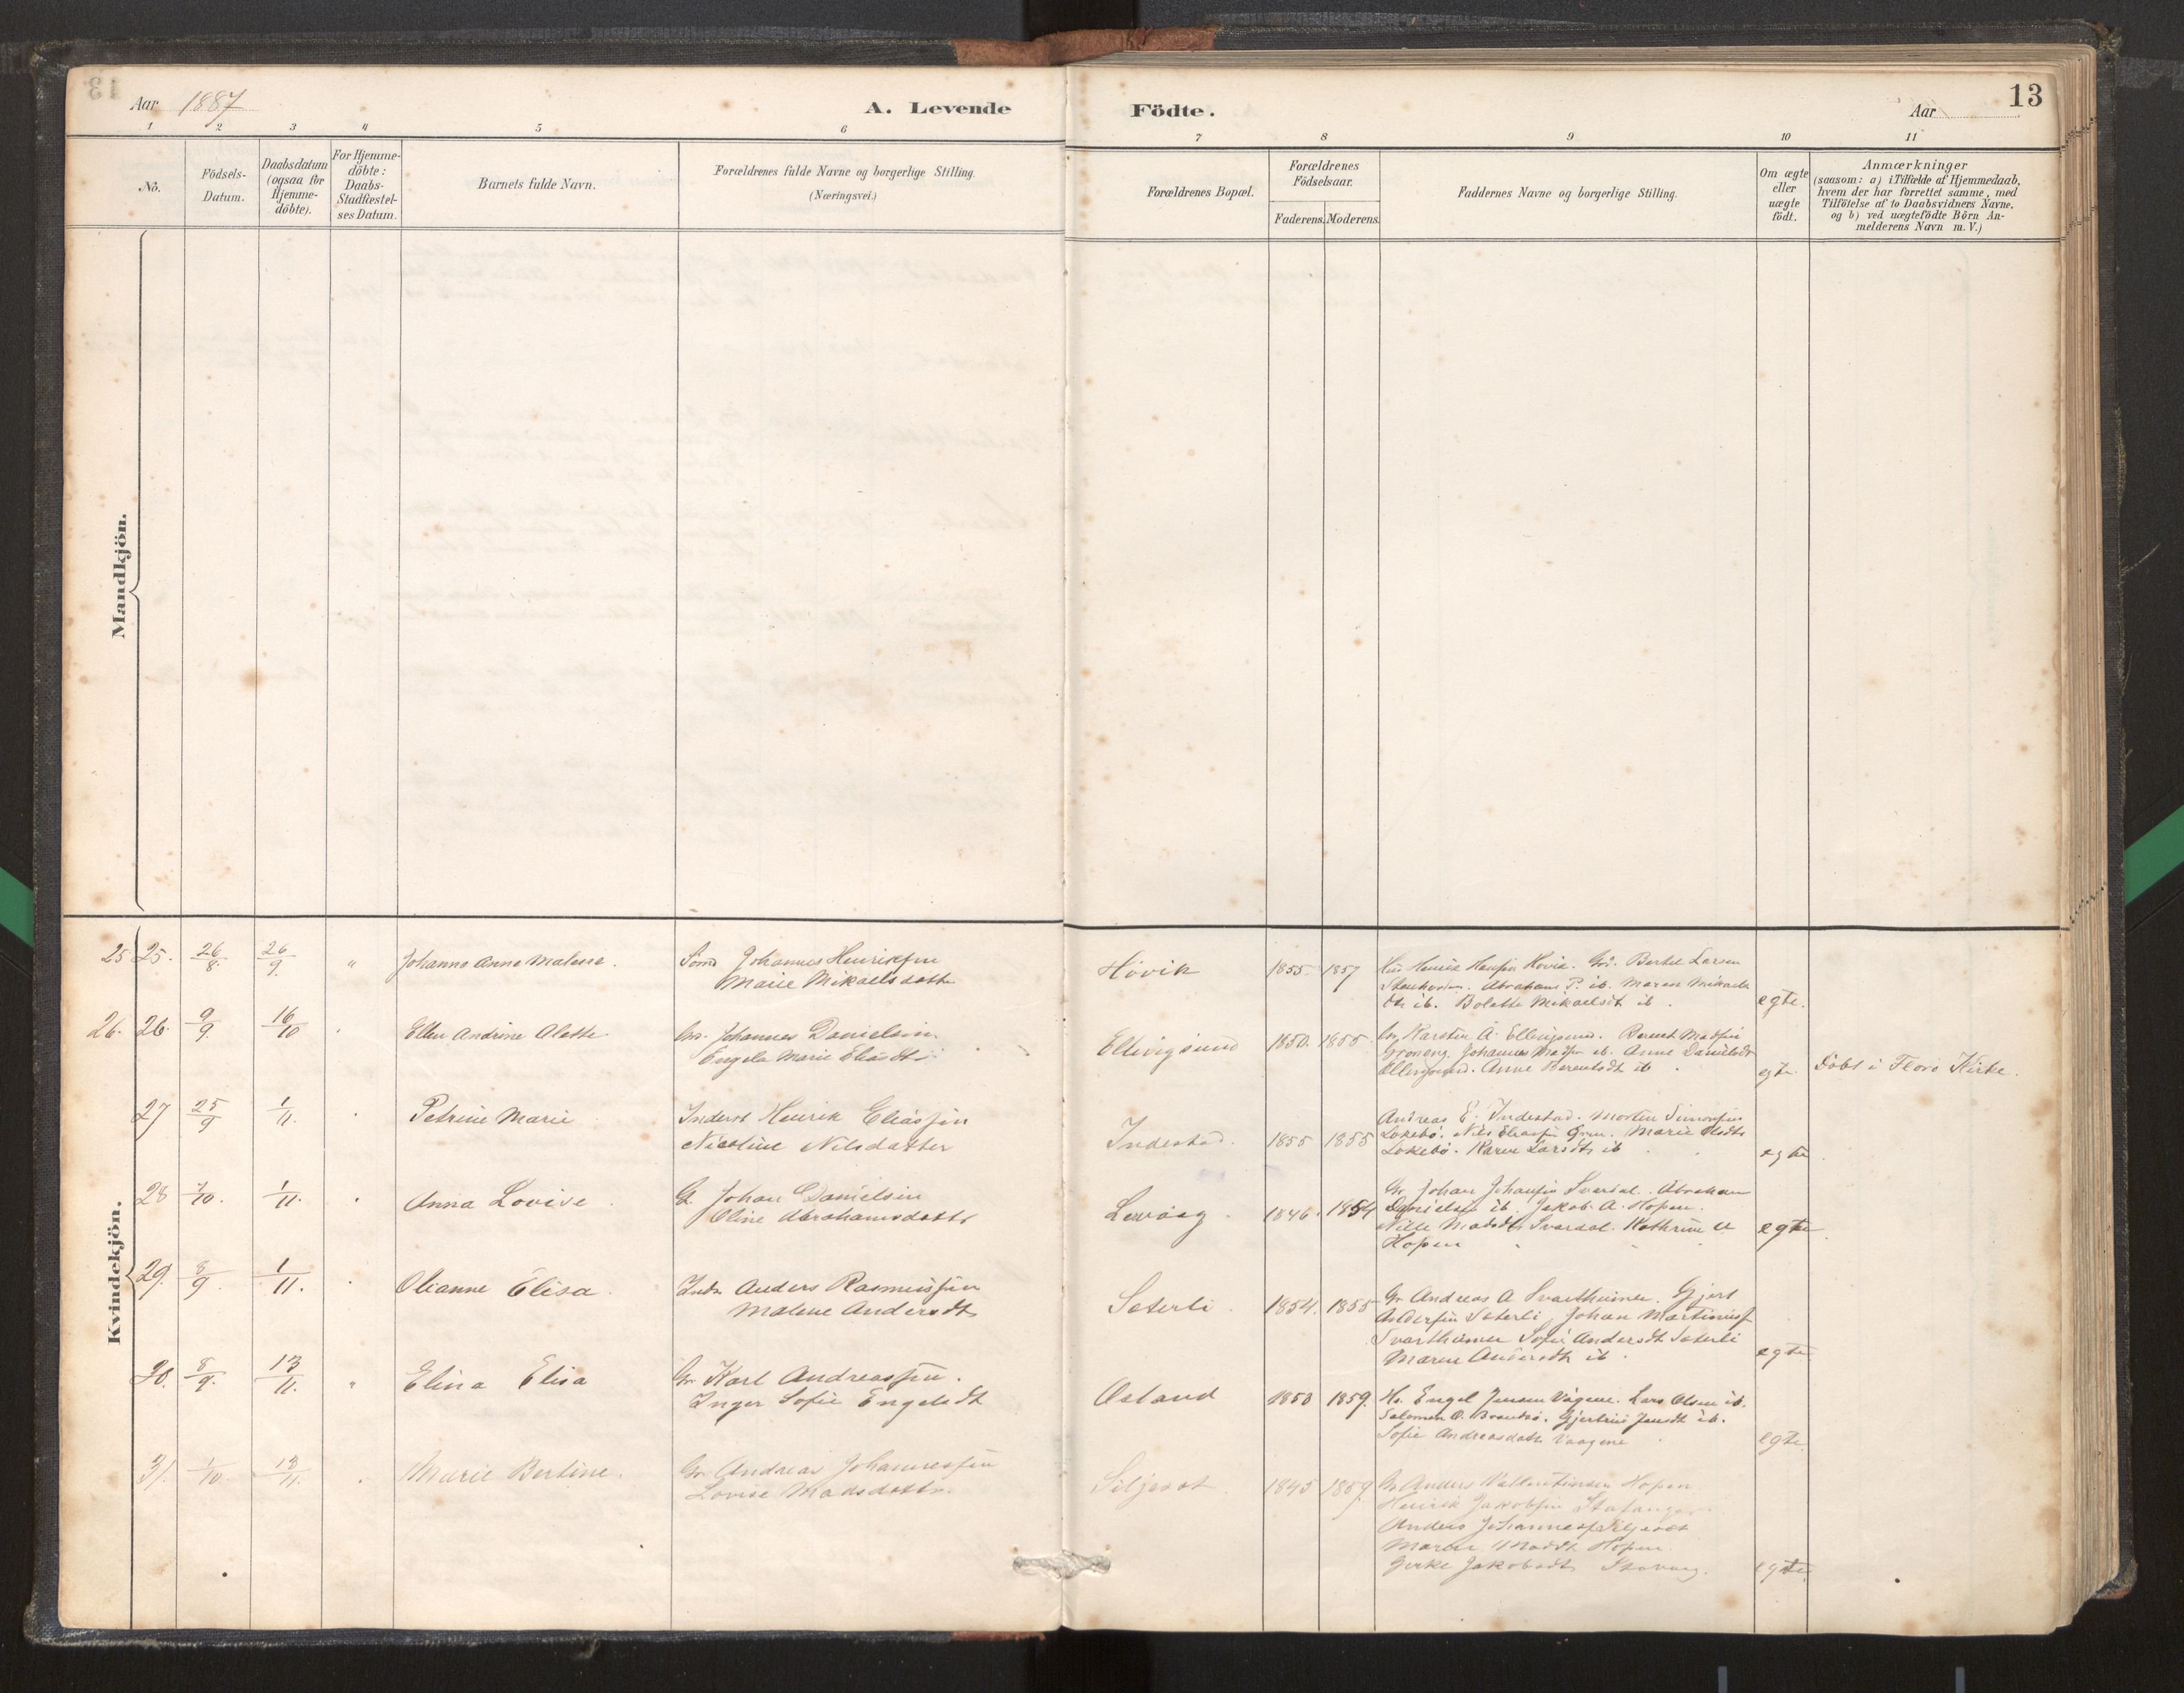 13
Aar 1887
A. Levende
Födte.
Aar
13
1 2 3 4 5 6 7 8 9 10 11
No.
Födsels-
Datum.
Daabsdatum
(ogsaa for
Hjemme-
döbte).
For Hjemme-
döbte:
Daabs-
Stadfæstel-
ses Datum.
Barnets fulde Navn.
Forældrenes fulde Navne og borgerlige Stilling.
(Næringsvei.)
Forældrenes Bopæl.
Forældrenes
Födselsaar.
Faderens. Moderens.
Faddernes Navne og borgerlige Stilling.
Om ægte
eller
uægte
födt.
Anmærkninger
(saasom: a) i Tilfælde af Hjemmedaab,
hvem der har forrettet samme, med
Tilföielse af to Daabsvidners Navne,
og b) ved uægtefödte Börn An-
melderens Navn m. V.)
Mandkjön.
Kvindekjön.
25 25. 26/8. 26/9. " Johanne Anne Malene.
Johannes Henriksen
Marie Mikaelsdatter
Hovik 1855. 1857
Henrik Hansen Hovik. Bertel Larsen
Abraham P. ib. Maren Mikaels
dtr ib. Bolette Mikaelsdt ib.
egte.
26. 26. 9/9. 16/10 Ellen Andrine Alette
Johannes Danielsen
Engela Marie Eliasdt
Ellingsund 1850. 1855.
Karsten A. Ellingsund. Berent Madsen
Johannes Madsen ib. Anne Danielsdt
Ellingsund. Anne Berentsdt ib.
egte. Döbt i Florö Kirke.
27 25/9 1/11. Petrine Marie
Inderst Henrik Eliassen
Nicoline Nilsdatter
Indestad. 1855 1855
Andreas E. Indestad. Morten Simonsen
Lokebö. Nils Eliassen Marie Olsdtr
Lokebö. Karen Larsdtr ib
egte.
28 7/10. 1/11. Anna Lovise
G. Johan Danielsen
Oline Abrahamsdattr
Levaag. 1846. 1854
Gr. Johan Johansen Svardal. Abraham
Danielsen ib. Jakob A. Hopen.
Nille Madsdtr Svardal. Kathrine
Hopen
egte.
29. 8/9. 1/11. Olianne Elisa.
Inds. Anders Rasmussen
Malene Andersdt
Seterli. 1854. 1855
Gr Andreas A Svarthumle. Gjert
Andersen Seterli Johan Martinusf
Svarthumle Sofie Andersdt Seterli
Maren Andersdtr ib.
egte.
30. 8/9. 13/11. " Elina Elisa
Gr. Karl Andreassen.
Inger Sofie Engelsdt
Osland 1850 1859.
Engel Jensen Vågene. Lars Olsen ib.
Salomon O. Brandsö. Gjertrud Jensdt ib.
Sofie Andreasdatr Vaagene
egte.
31. 1/10. 13/11. Marie Bertine.
Gr. Andreas Johannessen
Lovise Madsdattr.
Siljesöt 1845 1859.
Gr Anders Vallentinsen Hopen
Henrik Jakobsen Stafanger
Anders Johannesf Siljesöt
Maren Madsdt Hopen.
Gjerke Jakobsdtr
egte.